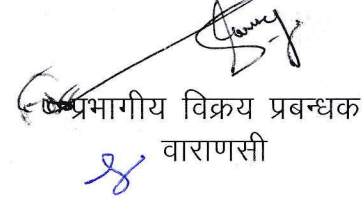 प्रभागीय विक्रय प्रबन्धक
वाराणसी